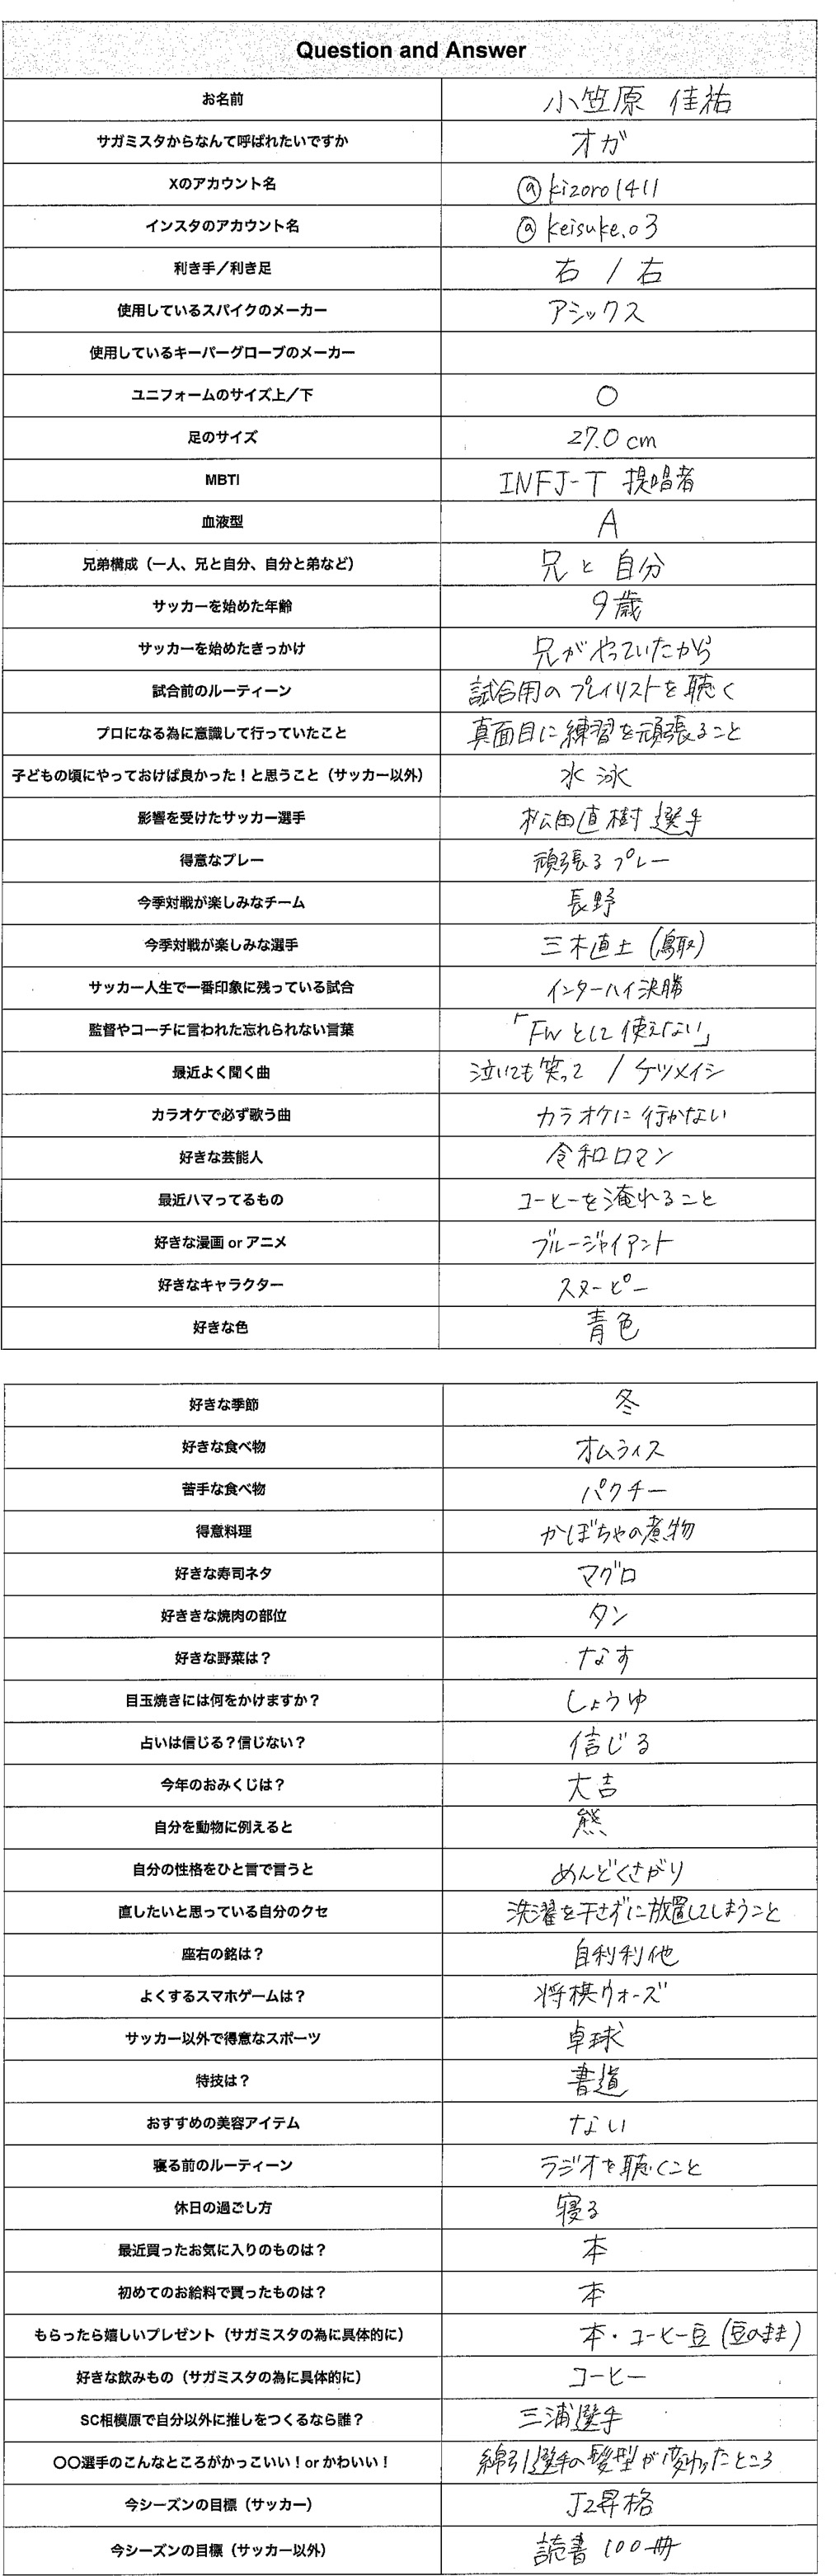 Question and Answer
お名前 小笠原 佳祐
サガミスタからなんて呼ばれたいですか オガ
Xのアカウント名 @kizoro1411
インスタのアカウント名 @keisuke.03
利き手／利き足 右 / 右
使用しているスパイクのメーカー アシックス
使用しているキーパーグローブのメーカー
ユニフォームのサイズ上／下 O
足のサイズ 27.0 cm
MBTI INFJ-T 提唱者
血液型 A
兄弟構成（一人、兄と自分、自分と弟など） 兄と自分
サッカーを始めた年齢 9歳
サッカーを始めたきっかけ 兄がやっていたから
試合前のルーティーン 試合用のプレイリストを聴く
プロになる為に意識して行っていたこと 真面目に練習を頑張ること
子どもの頃にやっておけば良かった！と思うこと（サッカー以外） 水泳
影響を受けたサッカー選手 松田直樹選手
得意なプレー 頑張るプレー
今季対戦が楽しみなチーム 長野
今季対戦が楽しみな選手 三木直土（鳥取）
サッカー人生で一番印象に残っている試合 インターハイ決勝
監督やコーチに言われた忘れられない言葉 「FWとして使えない」
最近よく聞く曲 泣いても笑って / ケツメイシ
カラオケで必ず歌う曲 カラオケに行かない
好きな芸能人 令和ロマン
最近ハマってるもの コーヒーを淹れること
好きな漫画 or アニメ ブルージャイアント
好きなキャラクター スヌーピー
好きな色 青色
好きな季節 冬
好きな食べ物 オムライス
苦手な食べ物 パクチー
得意料理 かぼちゃの煮物
好きな寿司ネタ マグロ
好ききな焼肉の部位 タン
好きな野菜は？ なす
目玉焼きには何をかけますか？ しょうゆ
占いは信じる？信じない？ 信じる
今年のおみくじは？ 大吉
自分を動物に例えると 熊
自分の性格をひと言で言うと めんどくさがり
直したいと思っている自分のクセ 洗濯を干さずに放置してしまうこと
座右の銘は？ 自利利他
よくするスマホゲームは？ 将棋ウォーズ
サッカー以外で得意なスポーツ 卓球
特技は？ 書道
おすすめの美容アイテム ない
寝る前のルーティーン ラジオを聴くこと
休日の過ごし方 寝る
最近買ったお気に入りのものは？ 本
初めてのお給料で買ったものは？ 本
もらったら嬉しいプレゼント（サガミスタの為に具体的に） 本・コーヒー豆（豆のまま）
好きな飲みもの（サガミスタの為に具体的に） コーヒー
SC相模原で自分以外に推しをつくるなら誰？ 三浦選手
〇〇選手のこんなところがかっこいい！or かわいい！ 綿引選手の髪型が変わったところ
今シーズンの目標（サッカー） J2昇格
今シーズンの目標（サッカー以外） 読書100冊